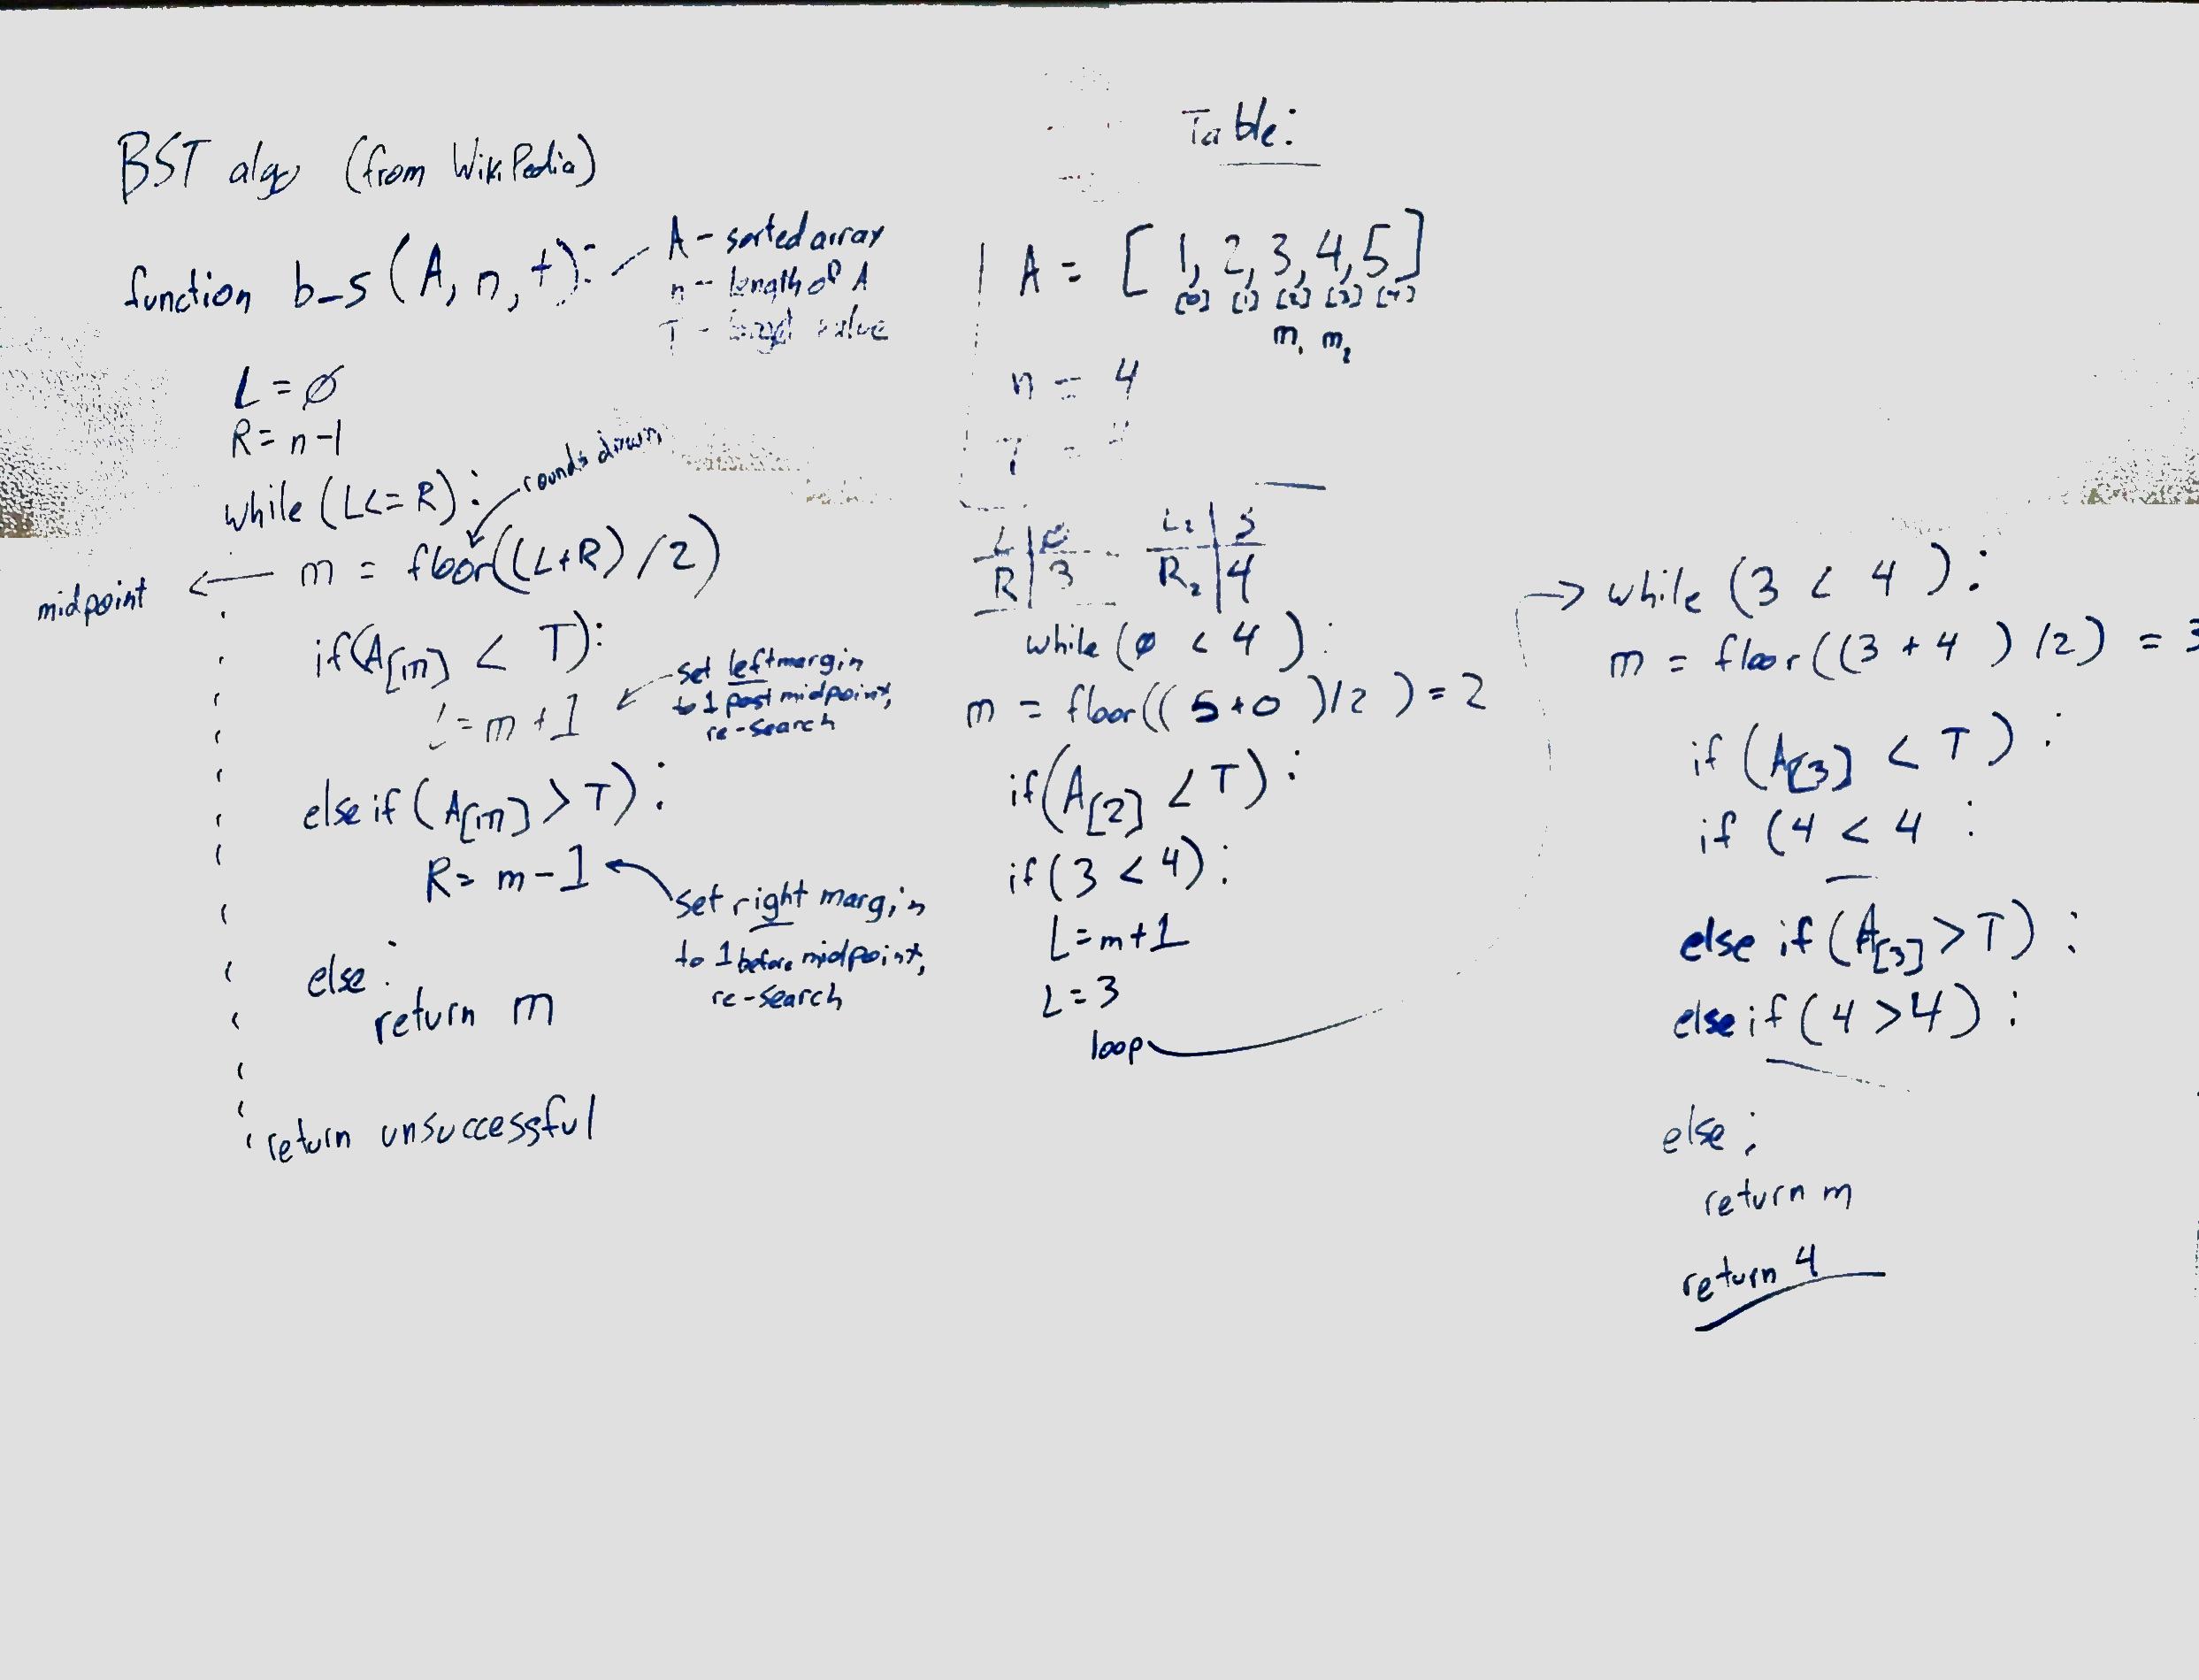 BST algo (from WikiPedia)
function b-s (A, n, t):
A - sorted array
n - length of A
T - target value
L = Ø
R = n-1
while (L<=R):
rounds down
m = floor((L+R)/2)
midpoint
if(A[m] < T):
L = m+1
set left margin
to 1 past midpoint,
re-search
else if (A[m] > T):
R = m-1
set right margin
to 1 before midpoint,
re-search
else:
return m
return unsuccessful
Table:
A = [1, 2, 3, 4, 5]
[0] [1] [2] [3] [4]
m1 m2
n = 4
T = 4
L
R 3
L2 3
R2 4
while (Ø < 4):
m = floor((5+0)/2) = 2
if(A[2] < T):
if(3 < 4):
L = m+1
L = 3
loop
while (3 < 4):
m = floor((3+4)/2) = 3
if (A[3] < T):
if (4 < 4:
else if (A[3] > T):
else if (4 > 4):
else:
return m
return 4